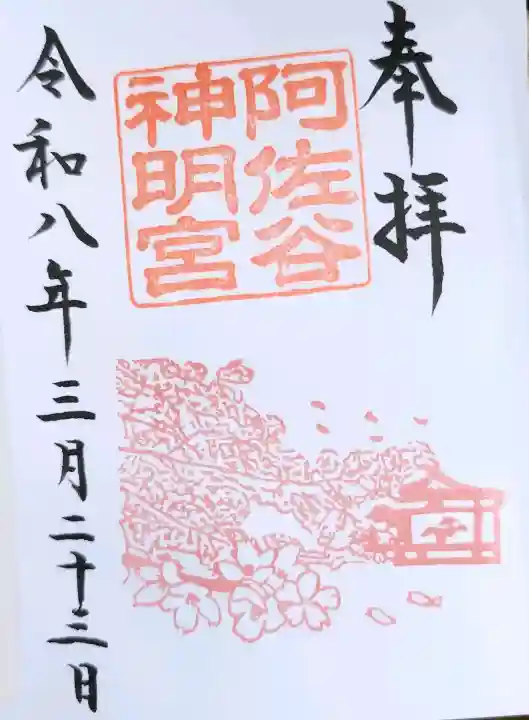 奉拝
阿佐谷
神明宮
令和八年三月二十三日